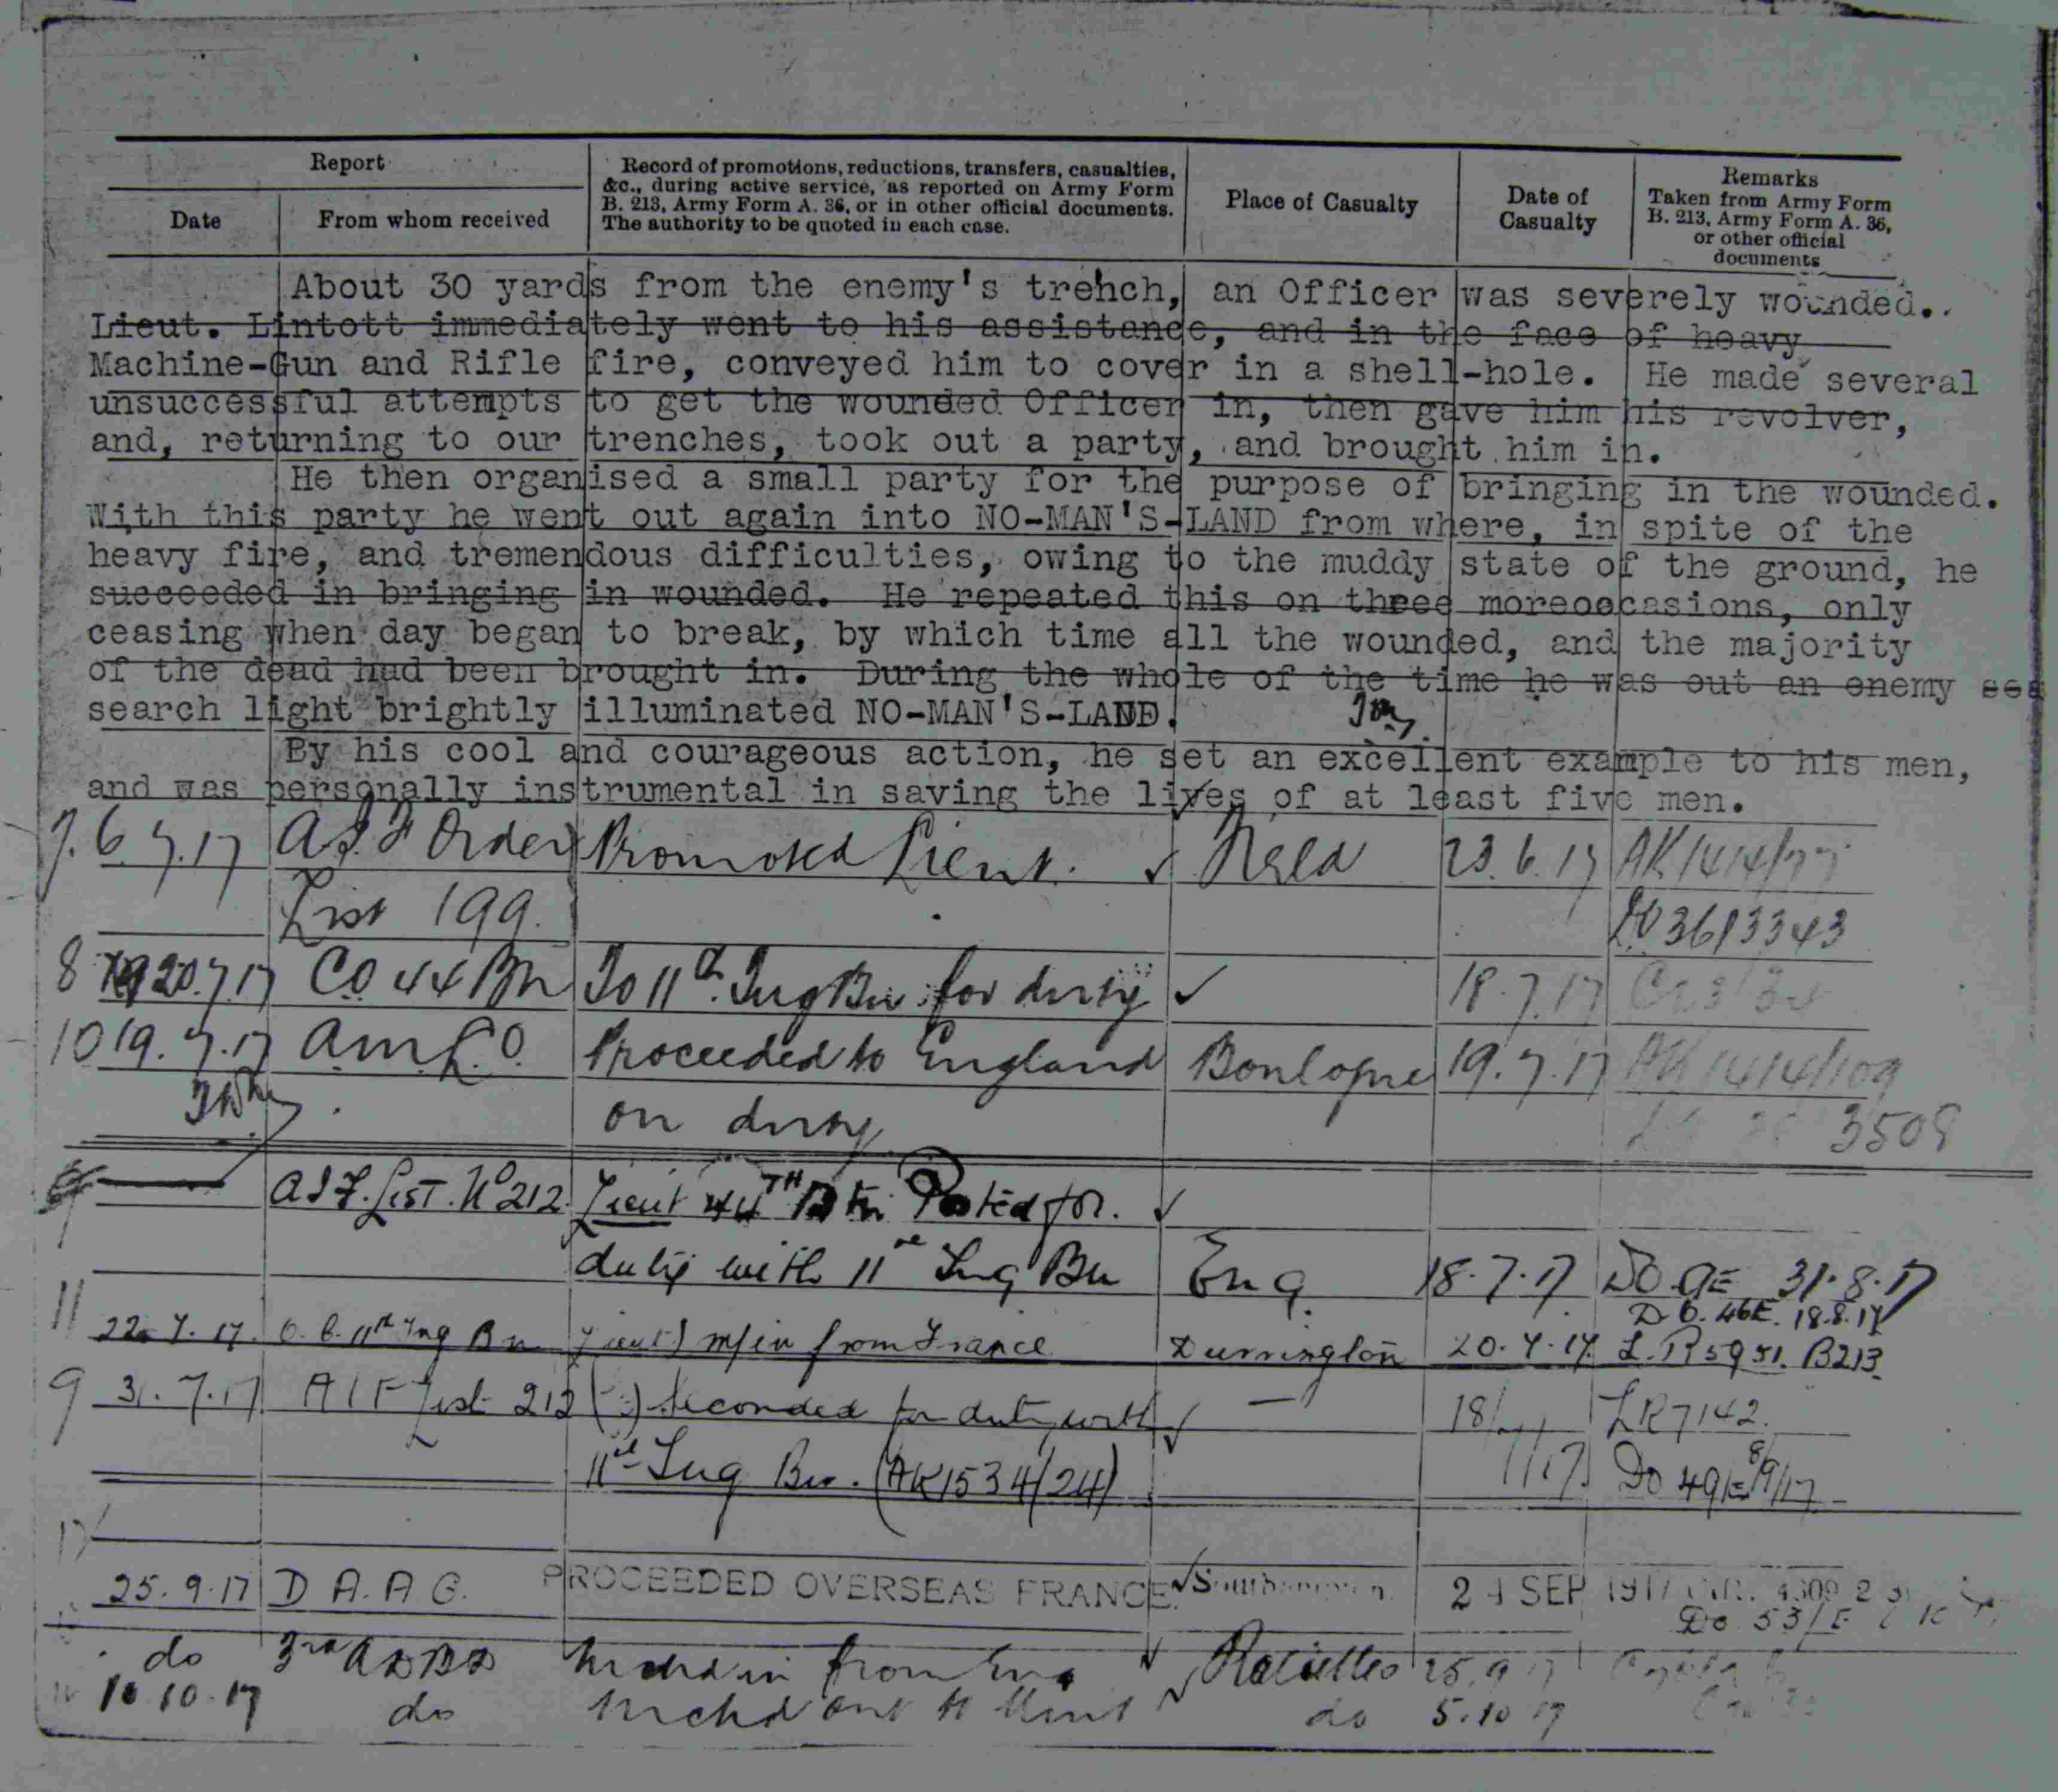 Report
Record of promotions, reductions, transfers, casualties,
&c., during active service, as reported on Army Form
B. 213, Army Form A. 36, or in other official documents.
The authority to be quoted in each case.
Place of Casualty
Date of
Casualty
Remarks
Taken from Army Form
B. 213, Army Form A. 36,
or other official
documents
Date
From whom received
About 30 yards from the enemy's trench, an Officer was severely wounded..
Lieut. Lintott immediately went to his assistance, and in the face of heavy
Machine-Gun and Rifle fire, conveyed him to cover in a shell-hole. He made several
unsuccessful attempts to get the wounded Officer in, then gave him his revolver,
and, returning to our trenches, took out a party, and brought him in.
He then organised a small party for the purpose of bringing in the wounded.
With this party he went out again into NO-MAN'S-LAND from where, in spite of the
heavy fire, and tremendous difficulties, owing to the muddy state of the ground, he
succeeded in bringing in wounded. He repeated this on three moreoccasions, only
ceasing when day began to break, by which time all the wounded, and the majority
of the dead had been brought in. During the whole of the time he was out an enemy sea
search light brightly illuminated NO-MAN'S-LAND.
By his cool and courageous action, he set an excellent example to his men,
and was personally instrumental in saving the lives of at least five men.
7. 6.7.17 A.I.F Orders Promoted Lieut. ✓ Field 23.6.17 AK1414/77
List 199. 3613343
8 20.7.17 CO 44 Bn To 11th Trg Bn for duty ✓ 18.7.17
10 19.7.17 A.M.L.O. Proceeded to England Boulogne 19.7.17 AK1414/109
on duty 3508
A I F. LIST. No 212 Lieut 44TH Btn Posted for ✓
duty with 11th Trng Bn Eng. 18.7.17 DO 9E 31.8.17
D.O. 46E. 18.8.17
11 22.7.17. O.C. 11th Trng Bn (Lieut) m/in from France Durrington 20.7.17. L.R5951. B213
9 31.7.17 AIF List 212 (") Seconded for duty with ✓ — 18/7/17 LR7142.
11th Trng Bn. (AK1534/24) DO 49E 8/9/17
25.9.17 D A.A.G. PROCEEDED OVERSEAS FRANCE. ✓ Southampton 24 SEP 1917
DO 53/E
do 3rd ADBD Marchd in from Eng ✓ Rouelles 25.9.17
10.10.17 do Marchd out to Unit ✓ do 5.10.17